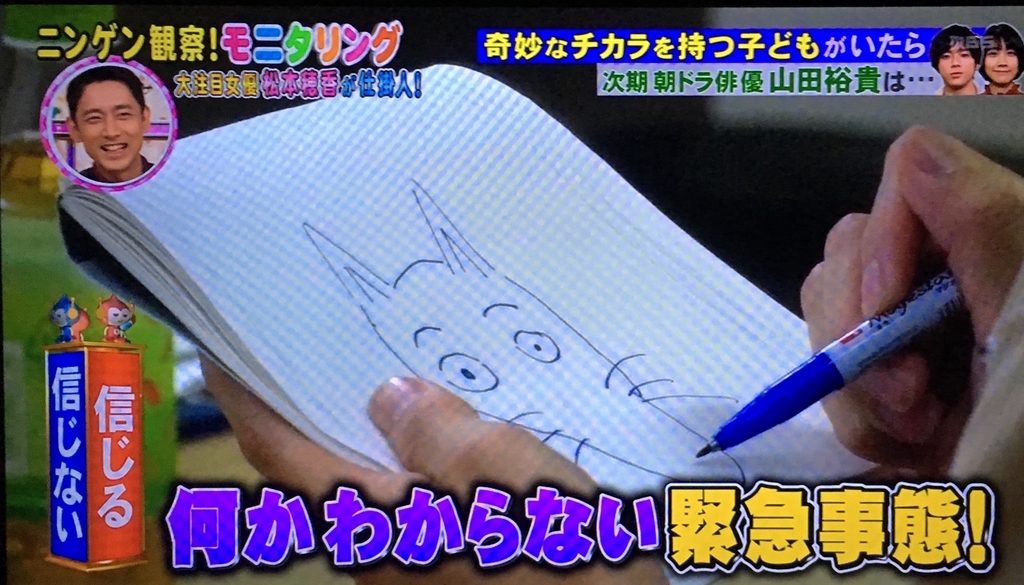 ニンゲン観察!モニタリング
大注目女優 松本穂香が仕掛人!
奇妙なチカラを持つ子どもがいたら
次期 朝ドラ俳優 山田裕貴は…
信じる
信じない
何かわからない緊急事態!